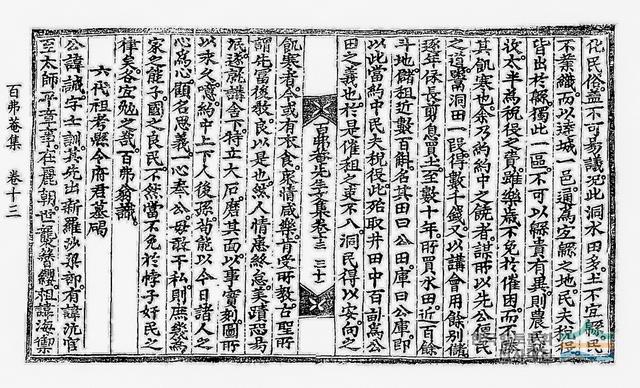 化民俗盖不可易議况此洞水田多土不宜緜民
不業織而以達城一邑通爲宜緜之地民夫税役
皆出於緜獨此一區不可以緜責有異則農
收太半爲税役之費雖樂歲不免於催因而不
其飢寒也余乃約約中之饒者謀所以先公便民
之道鬻洞田一段得數千錢又以講會用餘别儲
逐年俵長剪息買土至數十年所買水田近百餘
斗地儲租近數百斛名其田曰公田庫曰公庫卽
以此當約中民夫税役此殆取井田中百畝爲公
田之義也於是催租之吏不入洞民得以安向之
百弗菴先生文集卷之十三 三十
飢寒者今或有衣食衆情咸樂肯受所教古聖所
謂先富後教良以是也然人情患終怠美蹟恐易
泯遂就講舍下得立大石磨其面以事實刻圖所
以永久意約中上下人後孫苟能以今日諸人之
心爲心顧名思義一心奉公毋敢干私則庶幾爲
家之能子國之良民不然當不免於悖子奸民之
律矣各宜勉之哉百弗翁識
六代祖考縣令府君墓碣
公諱誠字士訓其先出新羅沙梁部有諱沆官
至太師平章事在麗朝世襲簪纓祖諱海禦
百弗菴集 卷十三